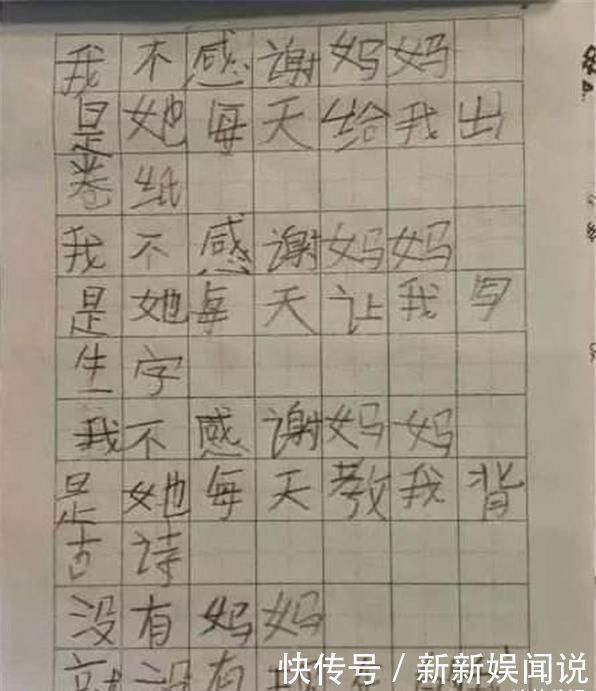 我不感谢妈妈
是她每天给我出
卷纸
我不感谢妈妈
是她每天让我写
生字
我不感谢妈妈
是她每天教我背
古诗
没有妈妈
就没有
快传号/新新娱闻说